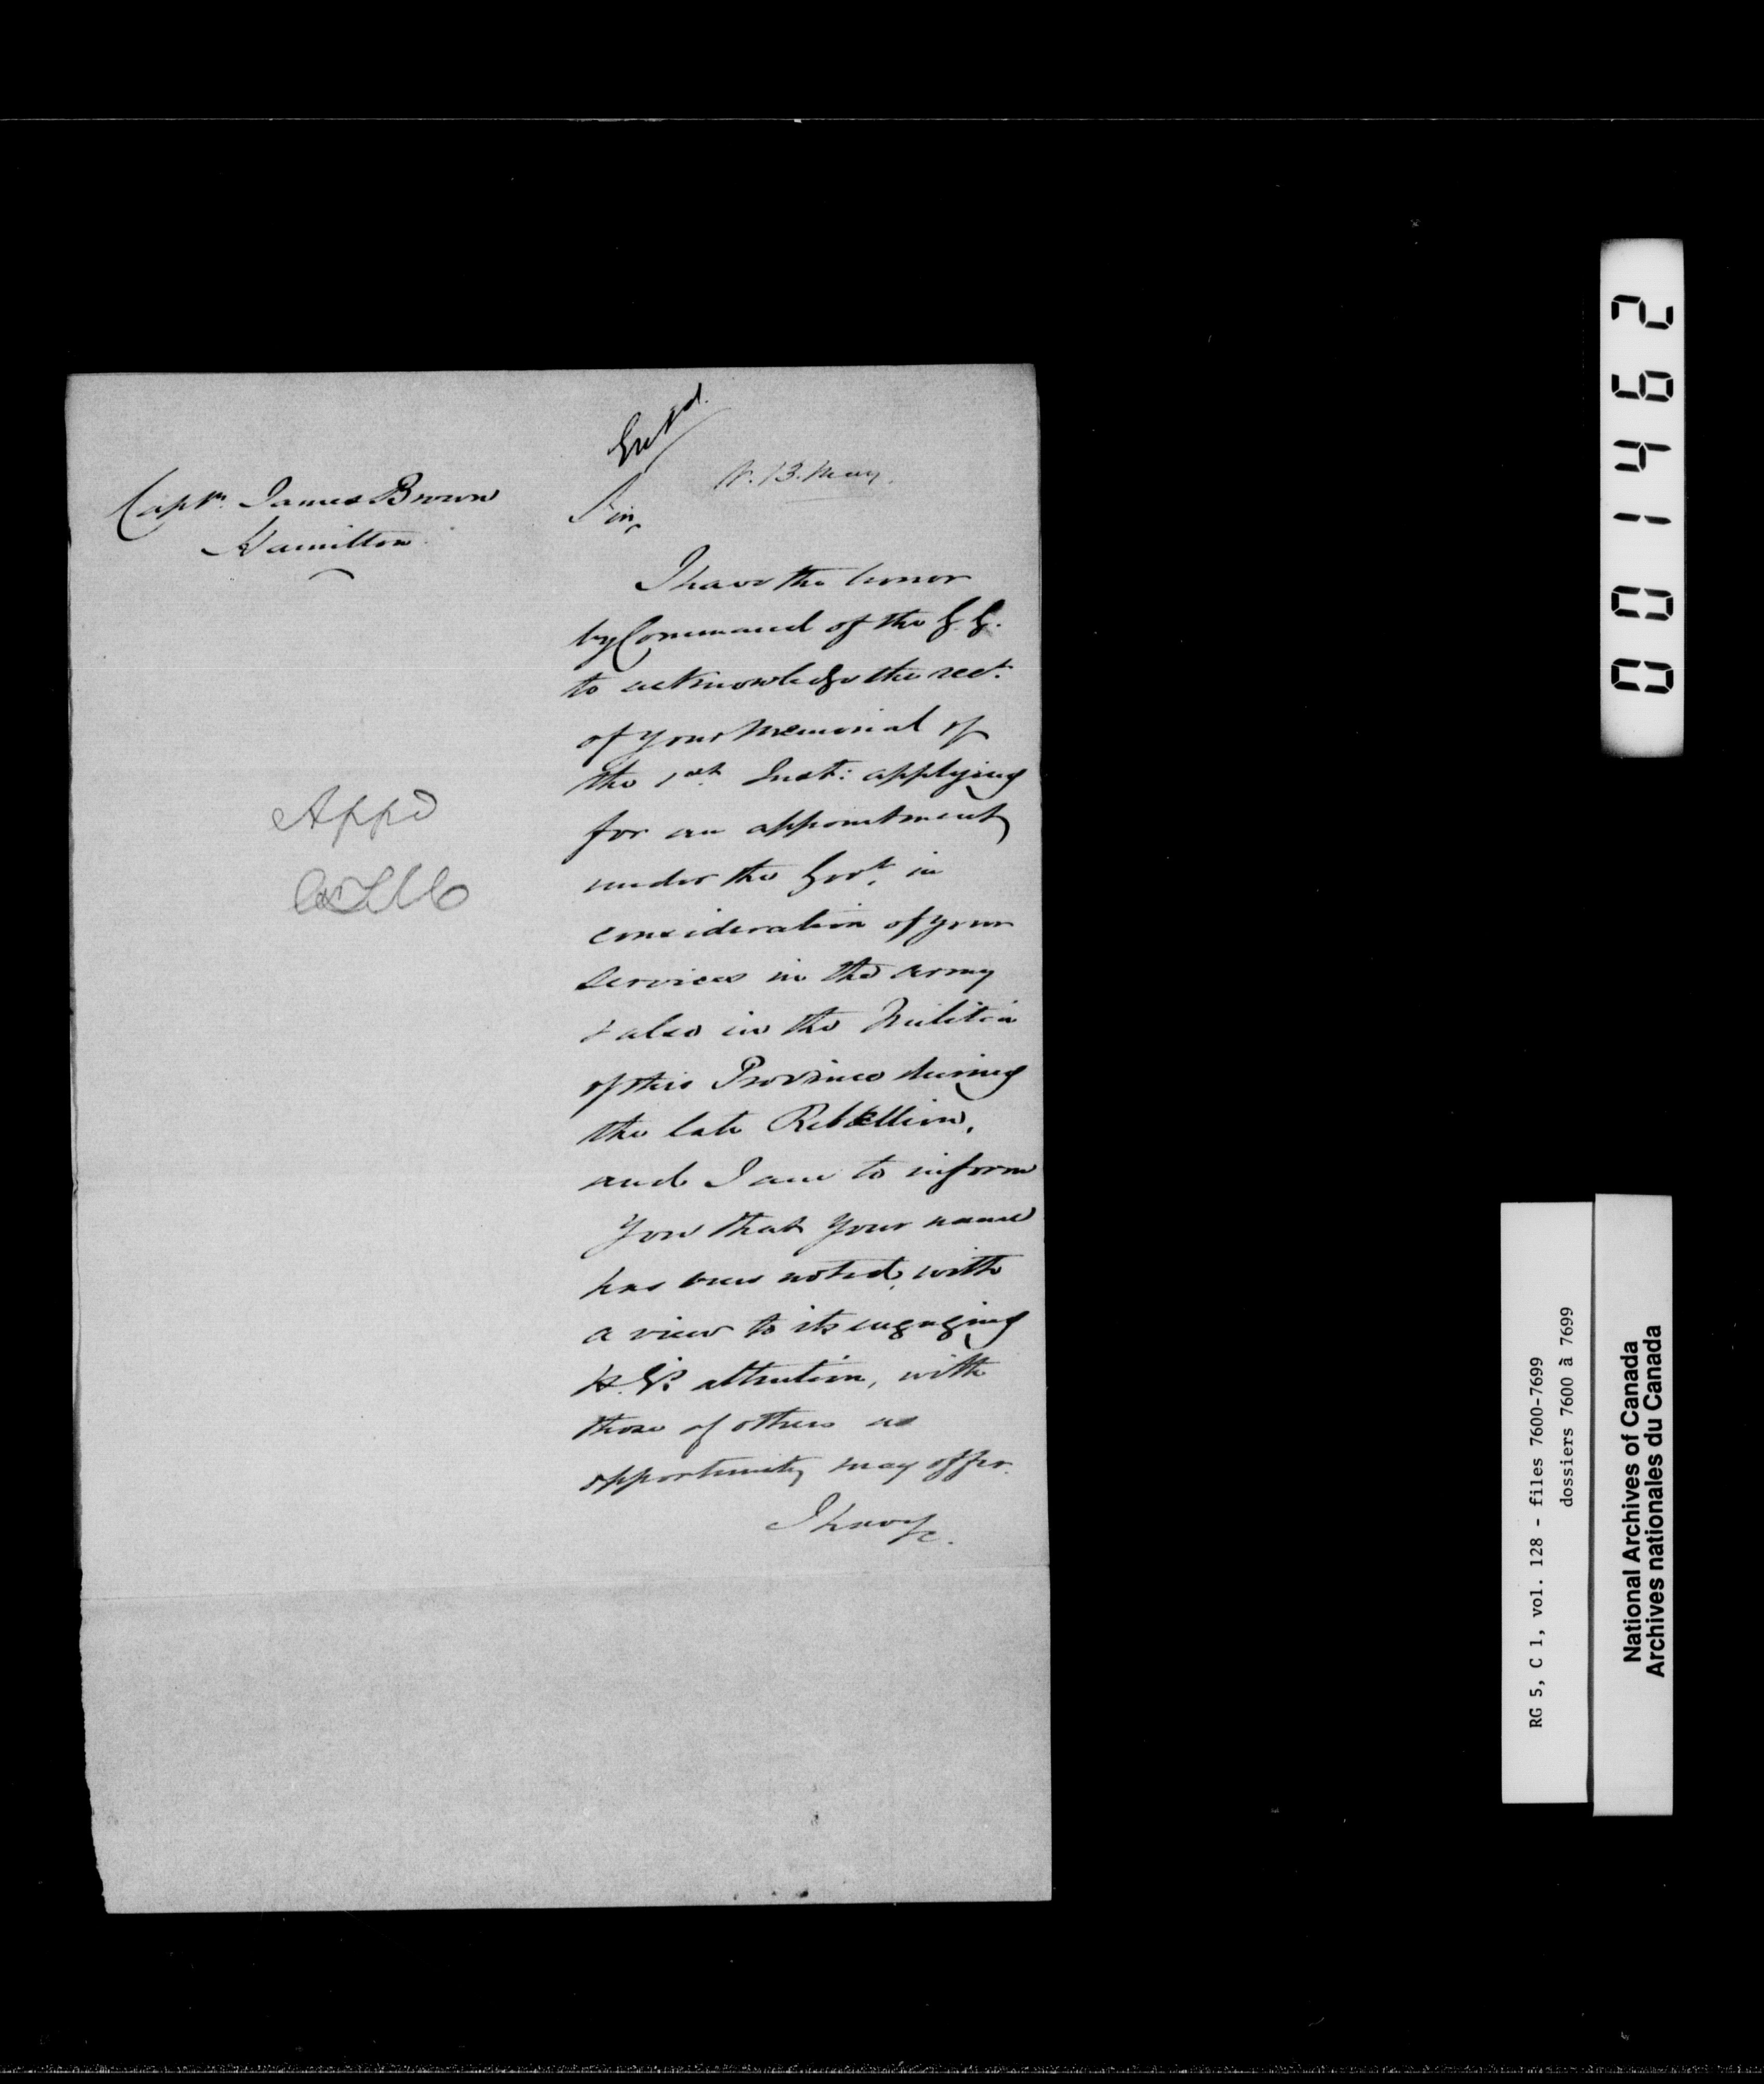 Entd.
13. May.
Captn. James Brown
Hamilton
Sir,
I have the honor
by Command of the G. G.
to acknowledge the rect.
of your Memorial of
the 1st. Inst: applying
for an appointment
under the Govt. in
consideration of your
services in the Army
& also in the Militia
of this Province during
the late Rebellion,
and I am to inform
you that your name
has been noted, with
a view to its engaging
H. E's attention, with
those of others as
opportunity may offer.
I have &c.
Appd
001462
RG 5, C 1, vol. 128 - files 7600-7699
dossiers 7600 à 7699
National Archives of Canada
Archives nationales du Canada